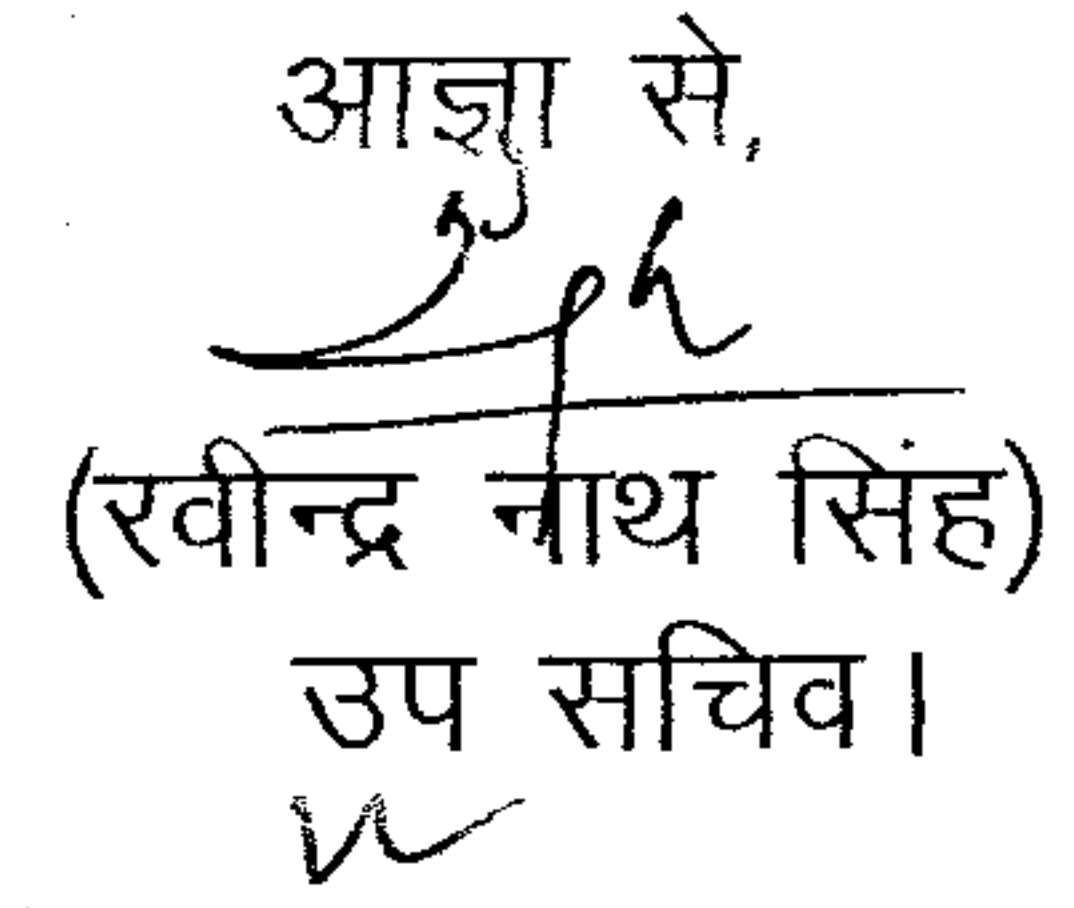 आज्ञा से,
(रवीन्द्र नाथ सिंह)
उप सचिव।